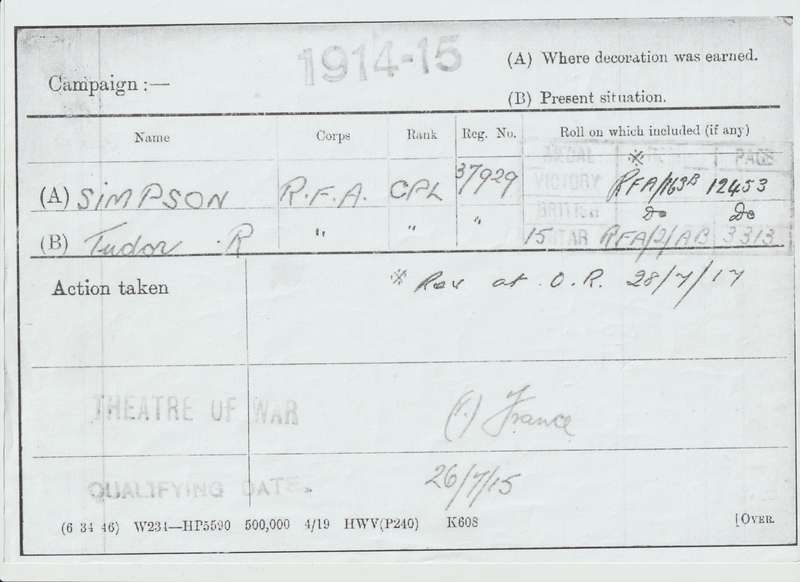 1914-15
(A) Where decoration was earned.
Campaign :—
(B) Present situation.
Name Corps Rank Reg. No. Roll on which included (if any)
MEDAL PAGE
(A) SIMPSON R.F.A. CPL 37929 VICTORY RFA/163B 12453
BRITISH Do Do
(B) Tudor R " " " 15 STAR RFA/2/AB 3313
Action taken ※ at O.R. 28/7/17
THEATRE OF WAR (1.) France
QUALIFYING DATE. 26/7/15
(6 34 46) W234—HP5590 500,000 4/19 HWV(P240) K608 [OVER.